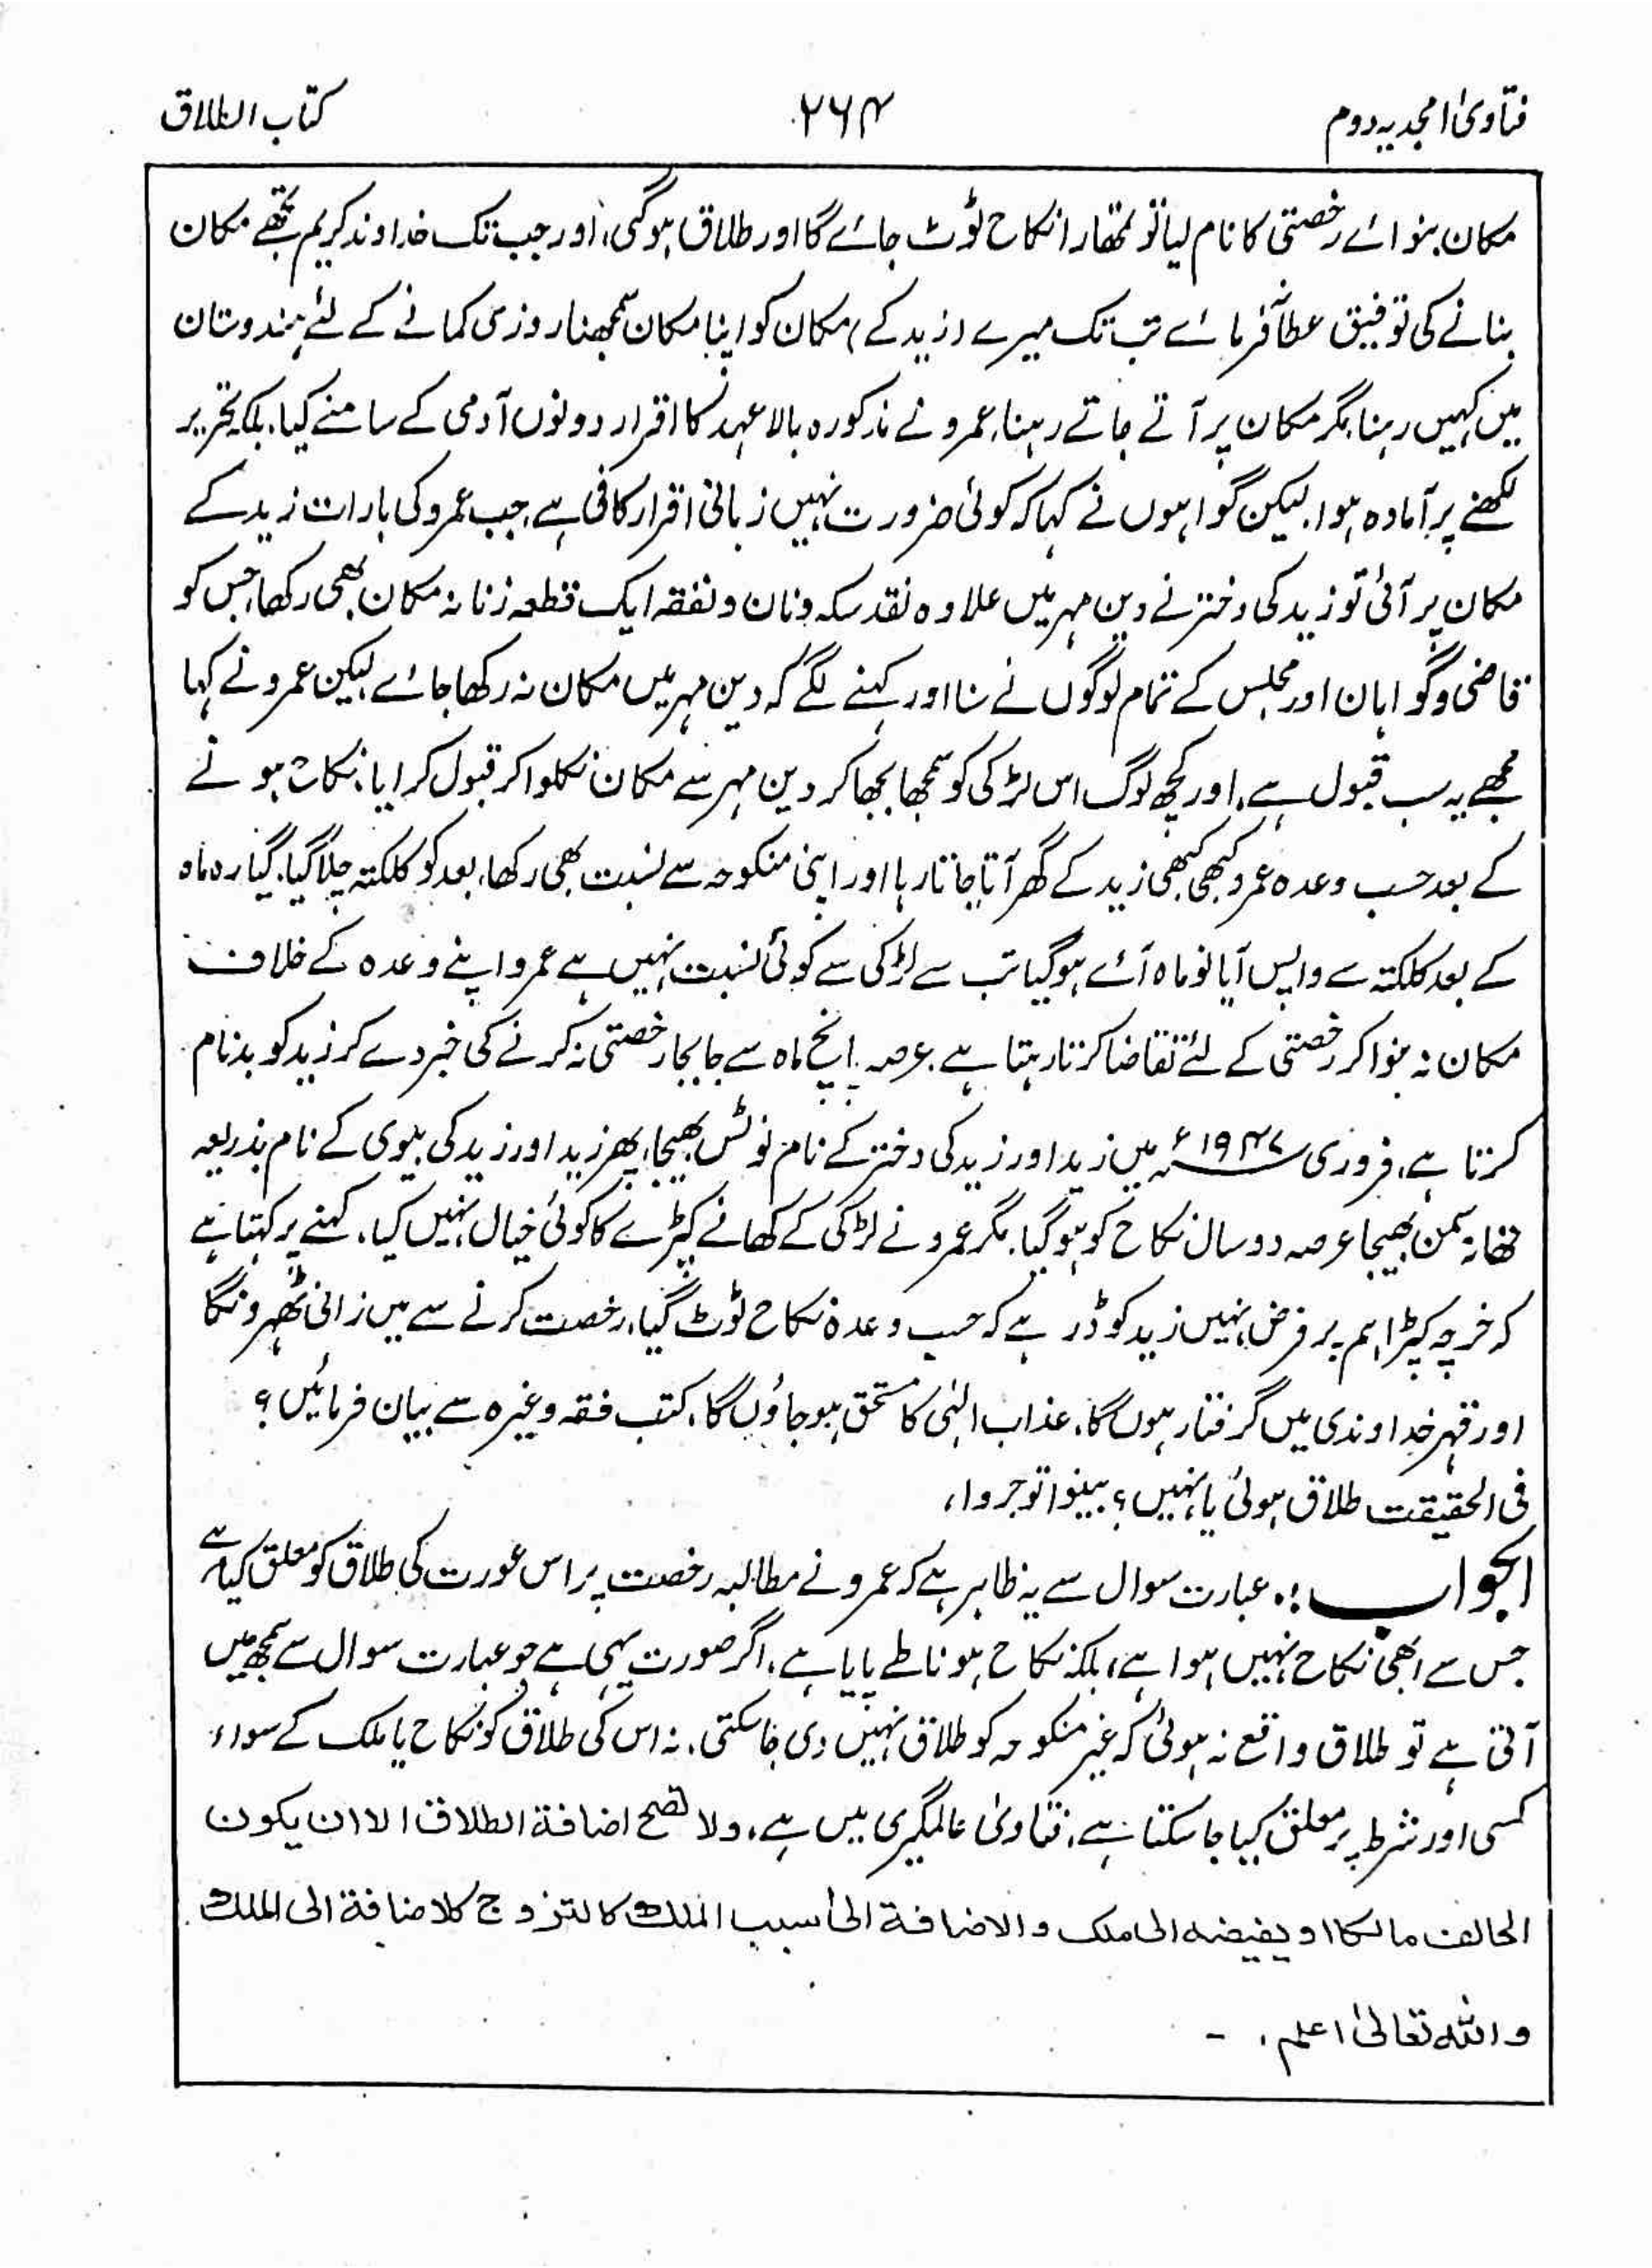 فتاویٰ امجدیہ دوم
۲۶۴
کتاب الطلاق
مکان بنوائے رخصتی کا نام لیا تو تمھارا نکاح ٹوٹ جائے گا اور طلاق ہوگی، اور جب تک خداوند کریم تجھے مکان
بنانے کی توفیق عطا فرمائے تب تک میرے (زید کے) مکان کو اپنا مکان سمجھنا روزی کمانے کے لئے ہندوستان
میں کہیں رہنا، مگر مکان پر آتے جاتے رہنا، عمرو نے مذکورہ بالا عہد کا اقرار دونوں آدمی کے سامنے کیا، بلکہ تحریر
لکھنے پر آمادہ ہوا، لیکن گواہوں نے کہا کہ کوئی ضرورت نہیں زبانی اقرار کافی ہے، جب عمرو کی بارات زید کے
مکان پر آئی تو زید کی دختر نے دین مہر میں علاوہ نقد سکہ ونان و نفقہ ایک قطعہ زنانہ مکان بھی رکھا، جس کو
قاضی وگواہان اور مجلس کے تمام لوگوں نے سنا اور کہنے لگے کہ دین مہر میں مکان نہ رکھا جائے لیکن عمرو نے کہا
مجھے یہ سب قبول ہے، اور کچھ لوگ اس لڑکی کو سمجھا بجھا کر دین مہر سے مکان نکلوا کر قبول کرایا، نکاح ہونے
کے بعد حسب وعدہ عمرو کبھی کبھی زید کے گھر آتا جاتا رہا اور اپنی منکوحہ سے نسبت بھی رکھا، بعد کو کلکتہ چلا گیا، گیارہ ماہ
کے بعد کلکتہ سے واپس آیا نو ماہ آئے ہوگیا تب سے لڑکی سے کوئی نسبت نہیں ہے عمرو اپنے وعدہ کے خلاف
مکان نہ بنوا کر رخصتی کے لئے تقاضا کرتا رہتا ہے، عرصہ پانچ ماہ سے جابجا رخصتی نہ کرنے کی خبر دے کر زید کو بدنام
کرتا ہے، فروری ۱۹۴۷ء میں زید اور زید کی دختر کے نام نوٹس بھیجا، پھر زید اور زید کی بیوی کے نام بذریعہ
تھانہ سمن بھیجا عرصہ دو سال نکاح کو ہوگیا، مگر عمرو نے لڑکی کے کھانے کپڑے کا کوئی خیال نہیں کیا، کہنے پر کہتا ہے
کہ خرچہ کپڑا ہم پر فرض نہیں زید کو ڈر ہے کہ حسب وعدہ نکاح ٹوٹ گیا، رخصت کرنے سے میں زانی ٹھہرونگا
اور قہر خداوندی میں گرفتار ہوں گا، عذاب الہٰی کا مستحق ہوجاؤں گا، کتب فقہ وغیرہ سے بیان فرمائیں؟
فی الحقیقت طلاق ہوئی یا نہیں؟ بینوا توجروا،
الجواب :۔ عبارت سوال سے یہ ظاہر ہے کہ عمرو نے مطالبہ رخصت پر اس عورت کی طلاق کو معلق کیا ہے
جس سے ابھی نکاح نہیں ہوا ہے، بلکہ نکاح ہونا طے پایا ہے، اگر صورت یہی ہے جو عبارت سوال سے سمجھ میں
آتی ہے تو طلاق واقع نہ ہوئی کہ غیر منکوحہ کو طلاق نہیں دی جاسکتی، نہ اس کی طلاق کو نکاح یا ملک کے سواء
کسی اور شرط پر معلق کیا جاسکتا ہے، فتاویٰ عالمگیری میں ہے، ولا تصح اضافة الطلاق الا ان یکون
الحالف مالکا او یضیفہ الی ملک والاضافة الی سبب الملک کالتزوج کالاضافة الی الملک
واللہ تعالیٰ اعلم، -